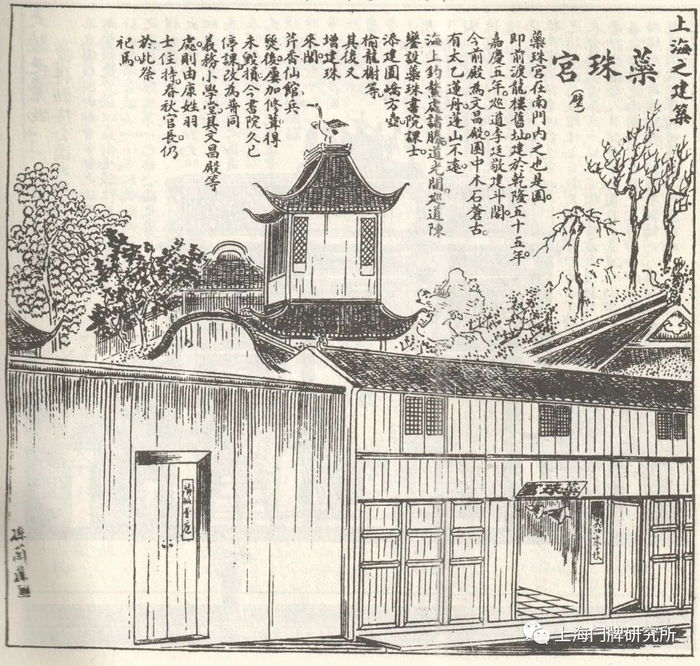 上海之建築
蘂珠宮
蘂珠宮在南門内之也是園。
即前渡龍樓舊址。建於乾隆五十五年。
嘉慶五年。巡道李廷敬建斗閣。
今前殿為文昌殿。園中木石蒼古。
有太乙蓮舟蓬山不遠。
海上釣鰲處諸勝。道光間。巡道陳
鑾設蘂珠書院課士。
添建圓嶠方壺。
榆龍榭等。
其後又
增建珠
來閣。
芹香仙館。兵
燹後。屢加修葺。得
未毀損。今書院久已
停課。改為普同
義務小學堂。其文昌殿等
處則由康姓羽
士住持。春秋官長仍
於此祭
祀焉。
蘂珠宮
上海门牌研究所